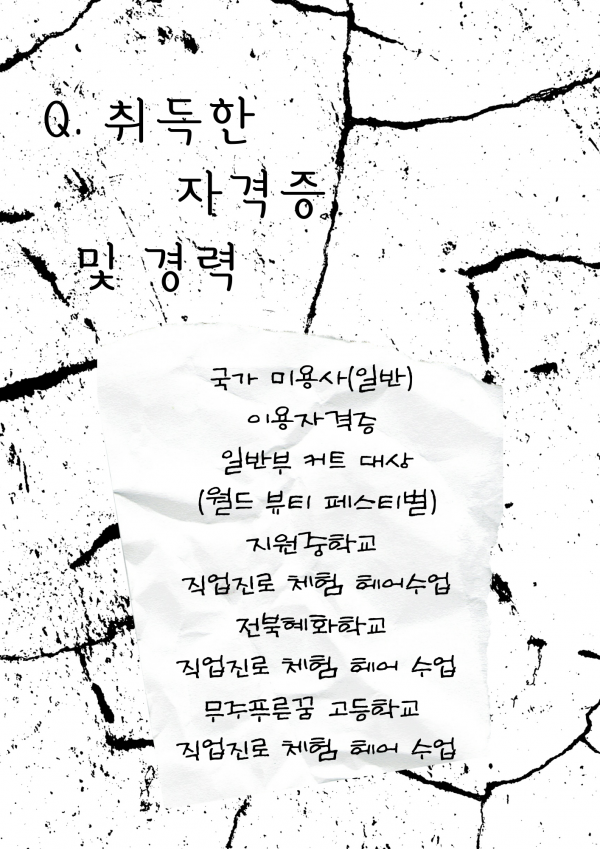 Q. 취득한
자격증
및 경력
국가 미용사(일반)
이용자격증
일반부 커트 대상
(월드 뷰티 페스티벌)
지원중학교
직업진로 체험 헤어수업
전북혜화학교
직업진로 체험 헤어 수업
무주푸른꿈 고등학교
직업진로 체험 헤어 수업